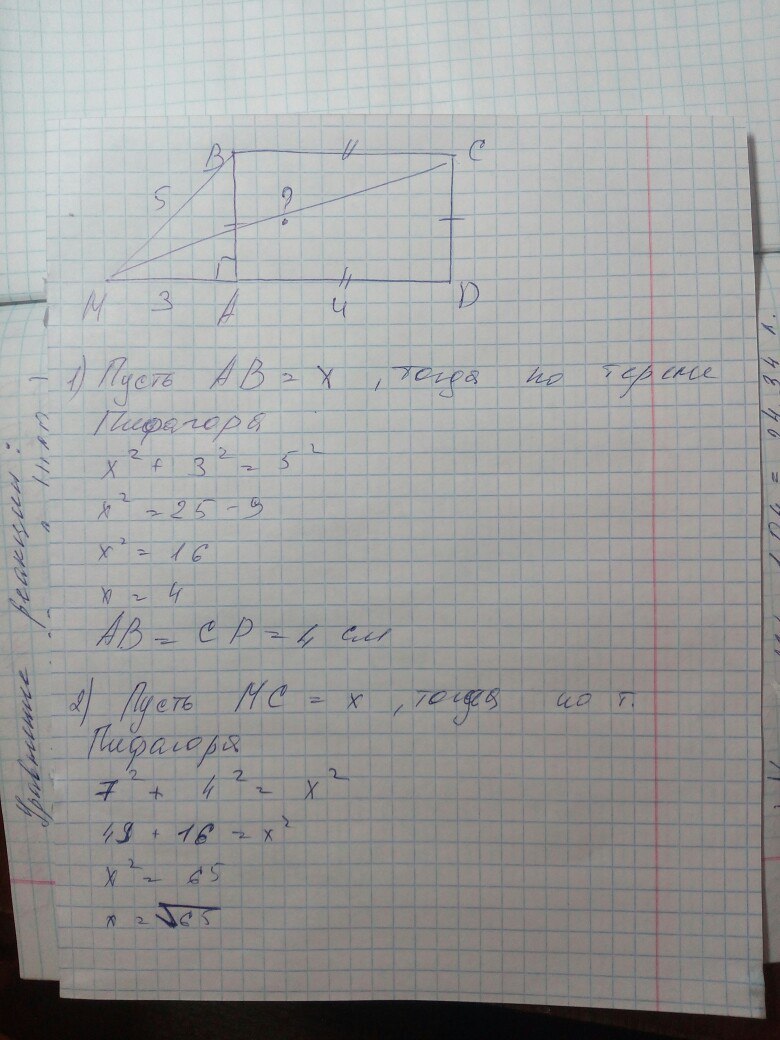 B
C
5
?
M
3
A
4
D
1) Пусть AB = x , тогда по тереме
Пифагора
x² + 3² = 5²
x² = 25 - 9
x² = 16
x = 4
AB = CD = 4 см
2) Пусть MC = x , тогда по т.
Пифагора
7² + 4² = x²
49 + 16 = x²
x² = 65
x = √65
Уравнение реакции: